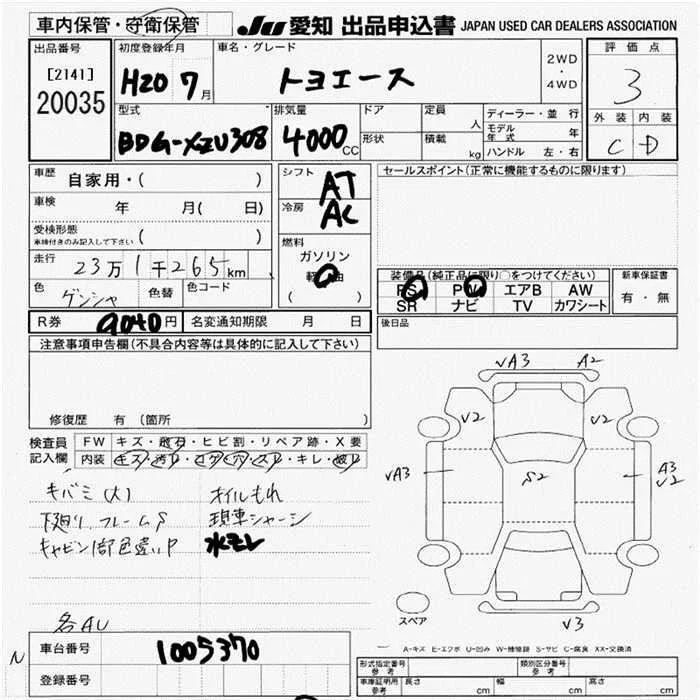 車内保管・守衛保管
JU 愛知 出品申込書 JAPAN USED CAR DEALERS ASSOCIATION
出品番号
[2141]
20035
初度登録年月
H20 7月
車名・グレード
トヨエース
2WD
・
4WD
評価点
3
外装 内装
C D
型式
BDG-XZU308
排気量
4000cc
ドア
形状
定員
人
積載
kg
ディーラー・並行
モデル年式 年
ハンドル 左・右
車歴 自家用・( )
車検 年 月( 日)
受検形態
車検付きのみ記入して下さい ( )
走行 23万1千265km
色 ゲンシャ 色替 色コード
シフト AT
冷房 AC
燃料
ガソリン
軽油
( )
セールスポイント(正常に機能するものに限ります)
装備品(純正品に限り○をつけてください)
PS PW エアB AW
SR ナビ TV カワシート
新車保証書
有・無
R券 9040円 名変通知期限 月 日
後日品
注意事項申告欄(不具合内容等は具体的に記入して下さい)
修復歴 有(箇所 )
検査員記入欄
FW キズ・飛石・ヒビ割・リペア跡・X要
内装 キズ・汚レ・コゲ・穴・スレ・キレ・破レ
キバミ(大) オイルもれ
下廻り、フレームS 現車シャーシ
キャビン1部色違いP 水モレ
各AU
VA3 A2
V2 V2
VA3 S2 A3
V2
スペア
V3
A-キズ E-エクボ U-凹み W-補修跡 S-サビ C-腐食 XX-交換済
N
車台番号 1005370
登録番号
形式指定番号 参考 類別区分番号 参考
車庫証明用 参考 長さ cm 幅 cm 高さ cm